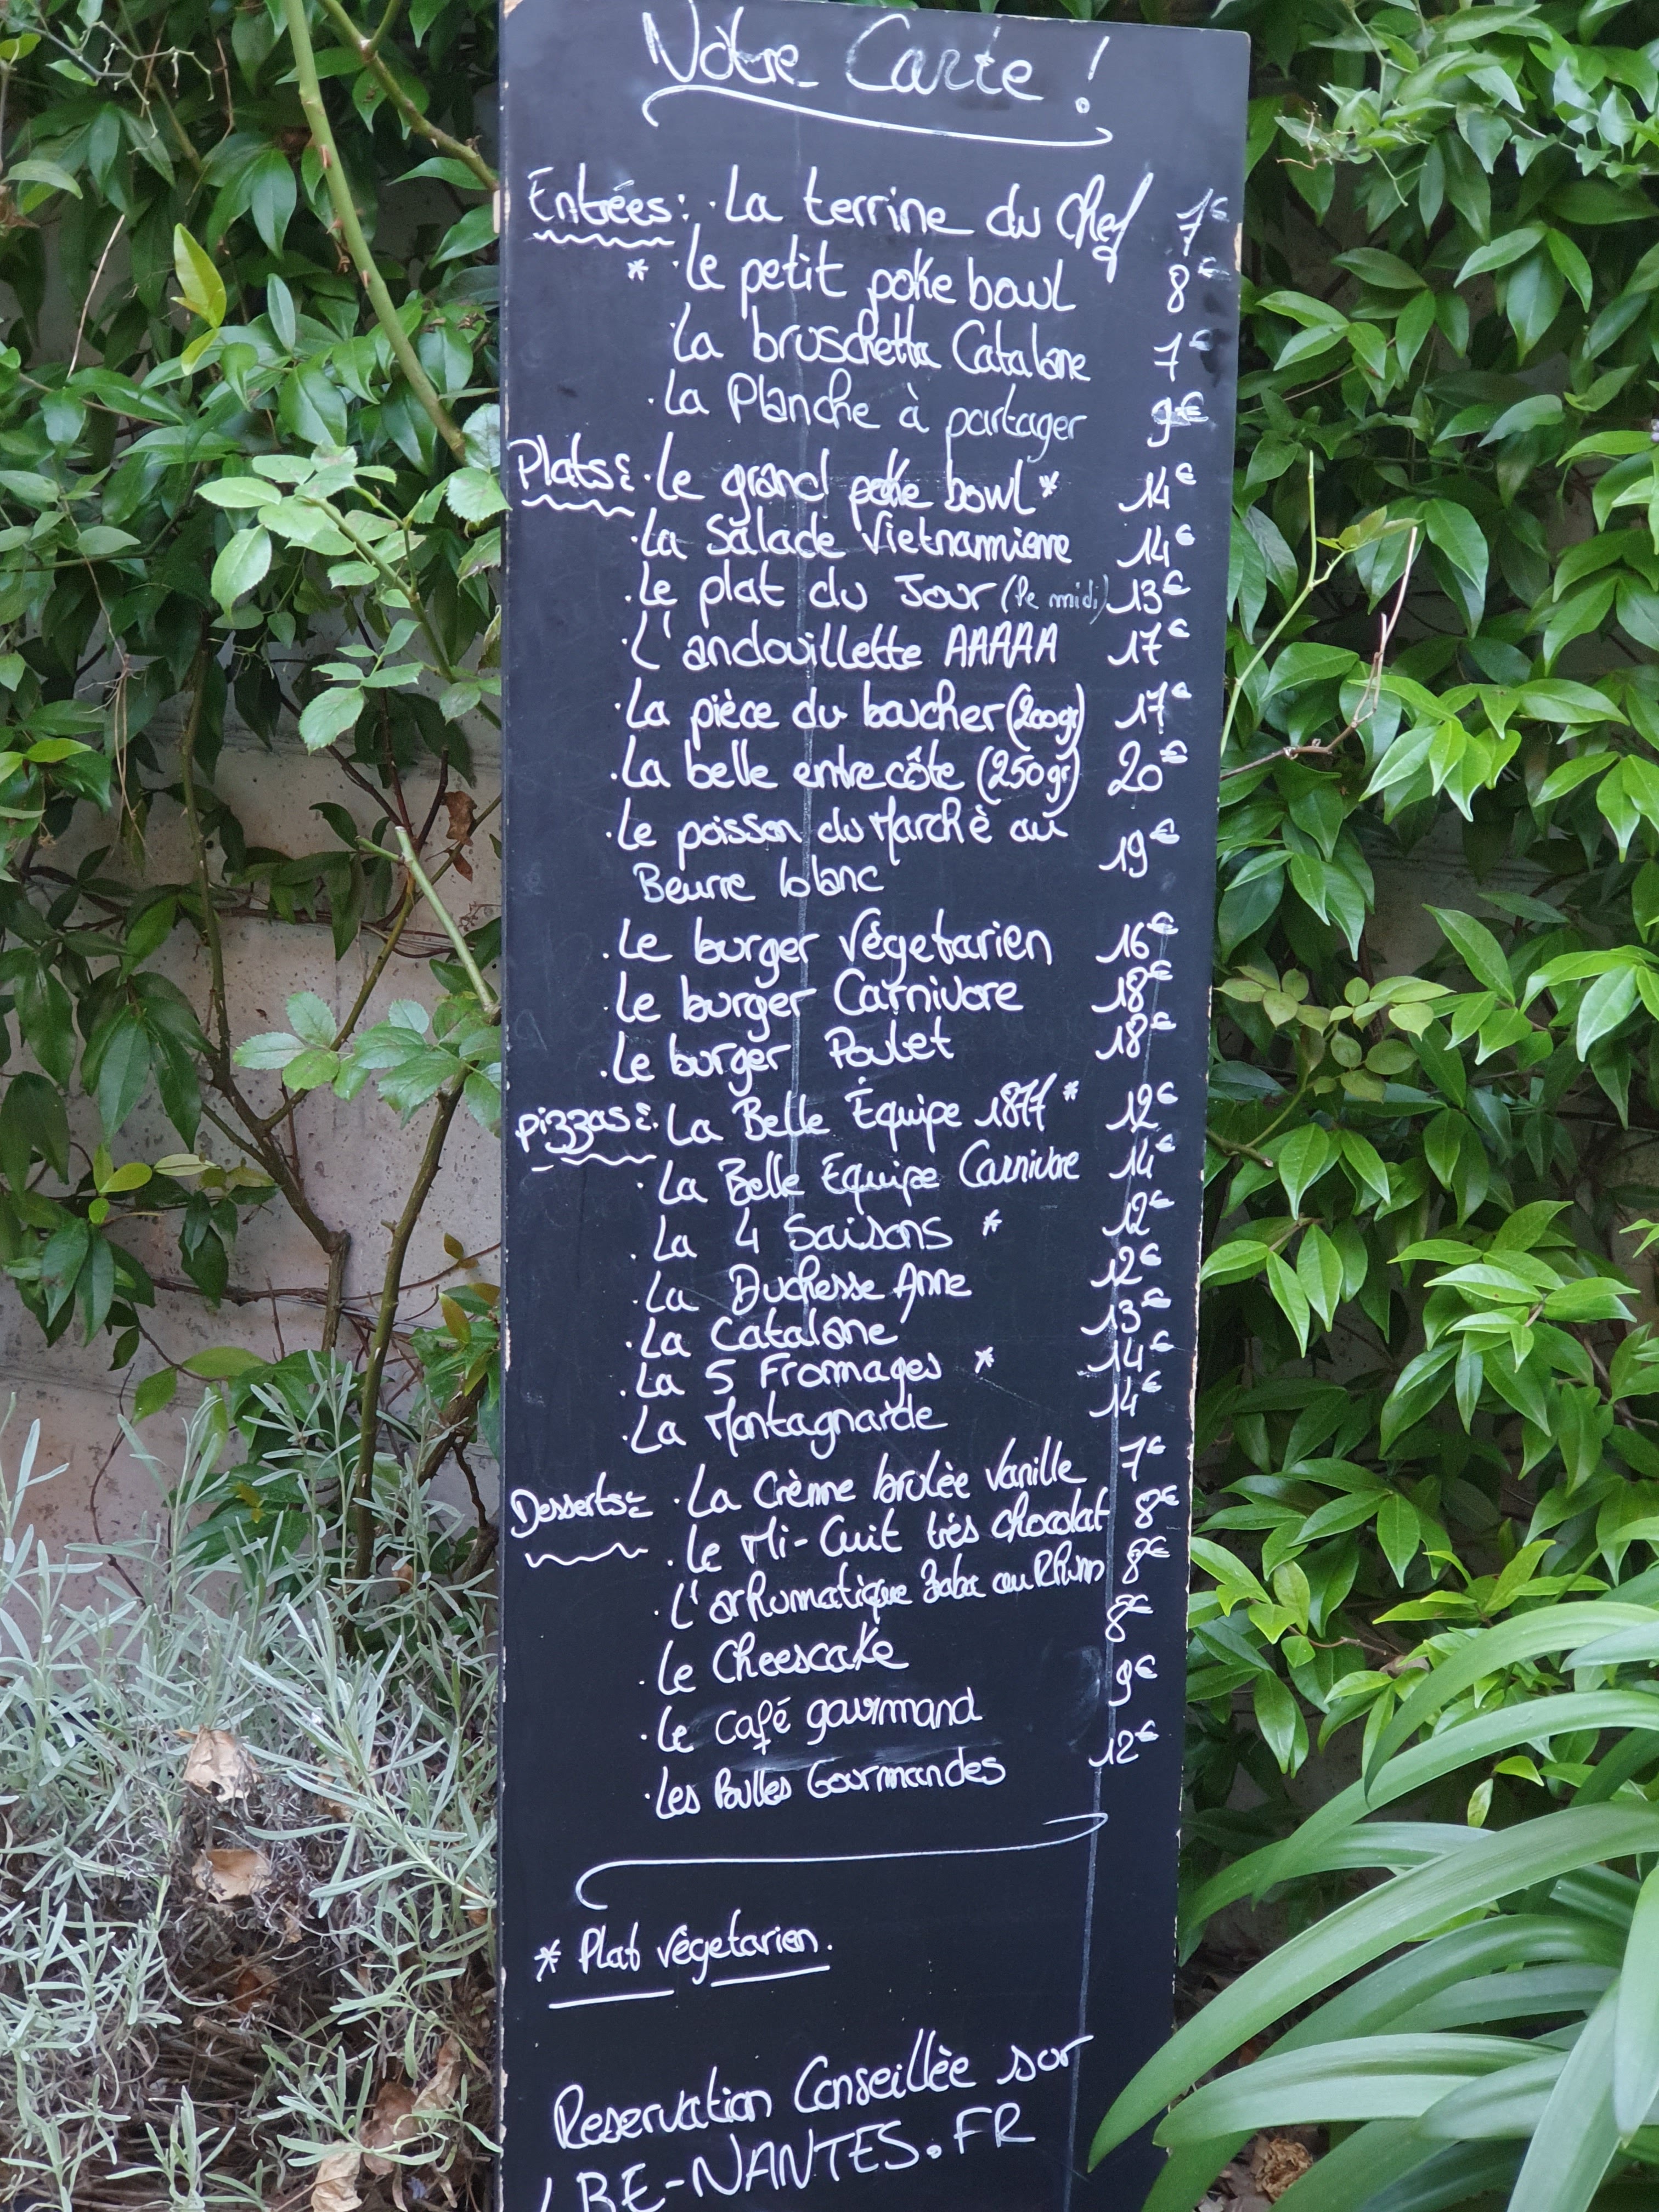 Nôtre Carte !
Entrées: · La terrine du Chef 7€
* · Le petit poke bowl 8€
La bruschetta Catalane 7€
· La Planche à partager 9€
Plats: · Le grand poke bowl * 14€
· La Salade Vietnamienne 14€
· Le plat du Jour (le midi) 13€
· L'andouillette AAAAA 17€
· La pièce du boucher (200gr) 17€
· La belle entrecôte (250gr) 20€
· Le poisson du Marchè au 19€
Beurre blanc
· Le burger végetarien 16€
· Le burger Carnivore 18€
· Le burger Poulet 18€
Pizzas: · La Belle Équipe 1877 * 12€
· La Belle Equipe Carnivore 14€
· La 4 Saisons * 12€
· La Duchesse Anne 12€
· La Catalane 13€
· La 5 Fromages * 14€
· La Montagnarde 14€
Desserts: · La Crème brulèe Vanille 7€
· Le Mi-Cuit très chocolat 8€
· L'arhumatique Baba au Rhum 8€
· Le Cheescake 8€
· Le Café gourmand 9€
· Les Boulles Gourmandes 12€
* Plat vègetarien.
Reservation Conseillèe sur
LBE-NANTES.FR